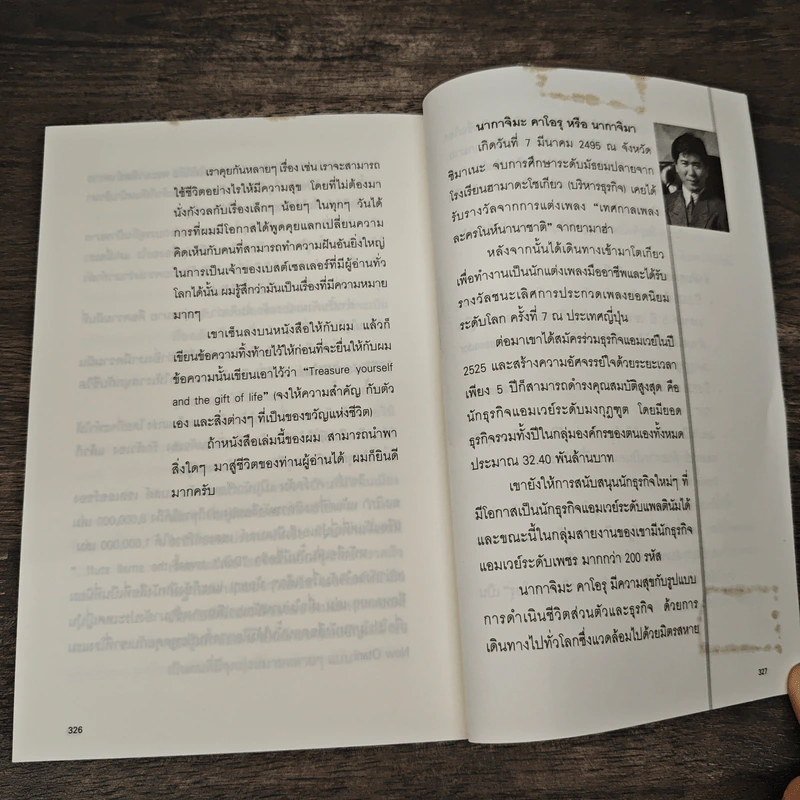 เราคุยกันหลายๆ เรื่อง เช่น เราจะสามารถ
ใช้ชีวิตอย่างไรให้มีความสุข โดยที่ไม่ต้องมา
นั่งกังวลกับเรื่องเล็กๆ น้อยๆ ในทุกๆ วันได้
การที่ผมมีโอกาสได้พูดคุยแลกเปลี่ยนความ
คิดเห็นกับคนที่สามารถทำความฝันอันยิ่งใหญ่
ในการเป็นเจ้าของเบสต์เซลเลอร์ที่มีผู้อ่านทั่ว
โลกได้นั้น ผมรู้สึกว่ามันเป็นเรื่องที่มีความหมาย
มากๆ
เขาเซ็นลงบนหนังสือให้กับผม แล้วก็
เขียนข้อความทิ้งท้ายไว้ให้ก่อนที่จะยื่นให้กับผม
ข้อความนั้นเขียนเอาไว้ว่า "Treasure yourself
and the gift of life" (จงให้ความสำคัญ กับตัว
เอง และสิ่งต่างๆ ที่เป็นของขวัญแห่งชีวิต)
ถ้าหนังสือเล่มนี้ของผม สามารถนำพา
สิ่งใดๆ มาสู่ชีวิตของท่านผู้อ่านได้ ผมก็ยินดี
มากครับ
326
นากาจิมะ คาโอรุ หรือ นากาจิมา
เกิดวันที่ 7 มีนาคม 2495 ณ จังหวัด
ชิมาเนะ จบการศึกษาระดับมัธยมปลายจาก
โรงเรียนฮามาดะโชเกียว (บริหารธุรกิจ) เคยได้
รับรางวัลจากการแต่งเพลง "เทศกาลเพลง
ละครโนห์นานาชาติ" จากยามาฮ่า
หลังจากนั้นได้เดินทางเข้ามาโตเกียว
เพื่อทำงานเป็นนักแต่งเพลงมืออาชีพและได้รับ
รางวัลชนะเลิศการประกวดเพลงยอดนิยม
ระดับโลก ครั้งที่ 7 ณ ประเทศญี่ปุ่น
ต่อมาเขาได้สมัครร่วมธุรกิจแอมเวย์ในปี
2525 และสร้างความอัศจรรย์ใจด้วยระยะเวลา
เพียง 5 ปีก็สามารถดำรงคุณสมบัติสูงสุด คือ
นักธุรกิจแอมเวย์ระดับมงกุฎทูต โดยมียอด
ธุรกิจรวมทั้งปีในกลุ่มองค์กรของตนเองทั้งหมด
ประมาณ 32.40 พันล้านบาท
เขายังให้การสนับสนุนนักธุรกิจใหม่ๆ ที่
มีโอกาสเป็นนักธุรกิจแอมเวย์ระดับแพลตินัมได้
และขณะนี้ในกลุ่มสายงานของเขามีนักธุรกิจ
แอมเวย์ระดับเพชร มากกว่า 200 รหัส
นากาจิมะ คาโอรุ มีความสุขกับรูปแบบ
การดำเนินชีวิตส่วนตัวและธุรกิจ ด้วยการ
เดินทางไปทั่วโลกซึ่งแวดล้อมไปด้วยมิตรสหาย
327